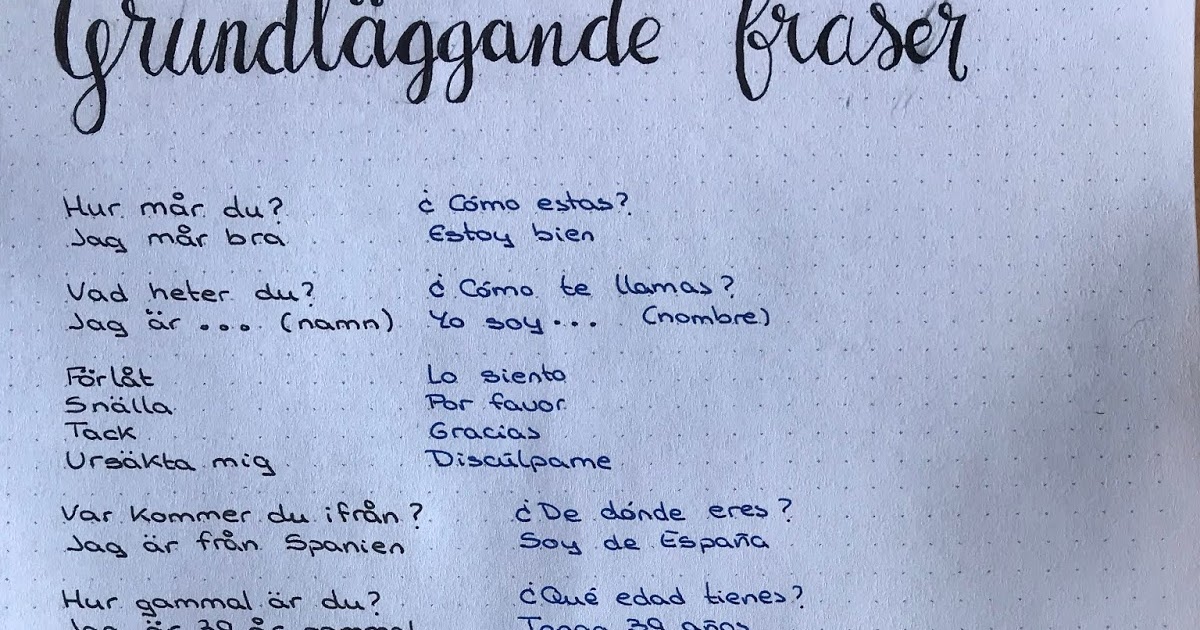 Grundläggande fraser
Hur mår du? ¿Cómo estas?
Jag mår bra Estoy bien
Vad heter du? ¿Cómo te llamas?
Jag är ... (namn) Yo soy ... (nombre)
Förlåt Lo siento
Snälla Por favor
Tack Gracias
Ursäkta mig Discúlpame
Var kommer du ifrån? ¿De dónde eres?
Jag är från Spanien Soy de España
Hur gammal är du? ¿Qué edad tienes?
Jag är 39 år gammal Tengo 39 años